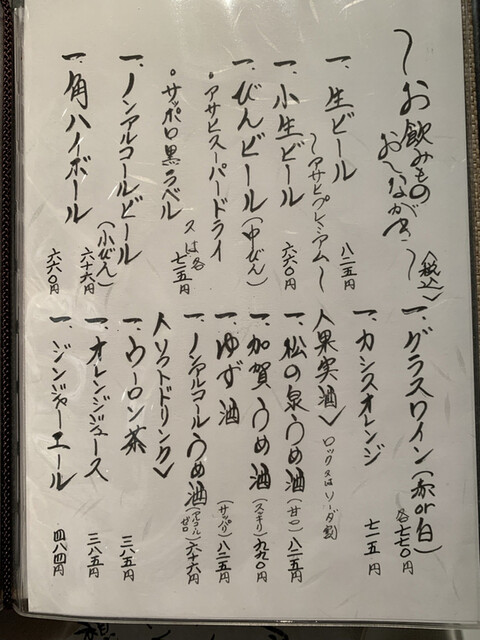 〜お飲みもの
おしながき〜
(税込)
一、生ビール
〜アサヒプレミアム〜
八二五円
一、小生ビール
六六〇円
一、びんビール(中びん)
・アサヒスーパードライ
又は各
・サッポロ黒ラベル
七一五円
一、ノンアルコールビール
(小びん)
六十六円
一、角ハイボール
六六〇円
一、グラスワイン(赤or白)
各七七〇円
一、カシスオレンジ
七一五円
〈果実酒〉ロック又はソーダ割
一、松の泉うめ酒(甘口)八二五円
一、加賀うめ酒(スッキリ)九九〇円
一、ゆず酒(サッパリ)八二五円
一、ノンアルコールうめ酒(アルコールゼロ)六十六円
〈ソフトドリンク〉
一、ウーロン茶
三八五円
一、オレンジジュース
三八五円
一、ジンジャーエール
四八四円